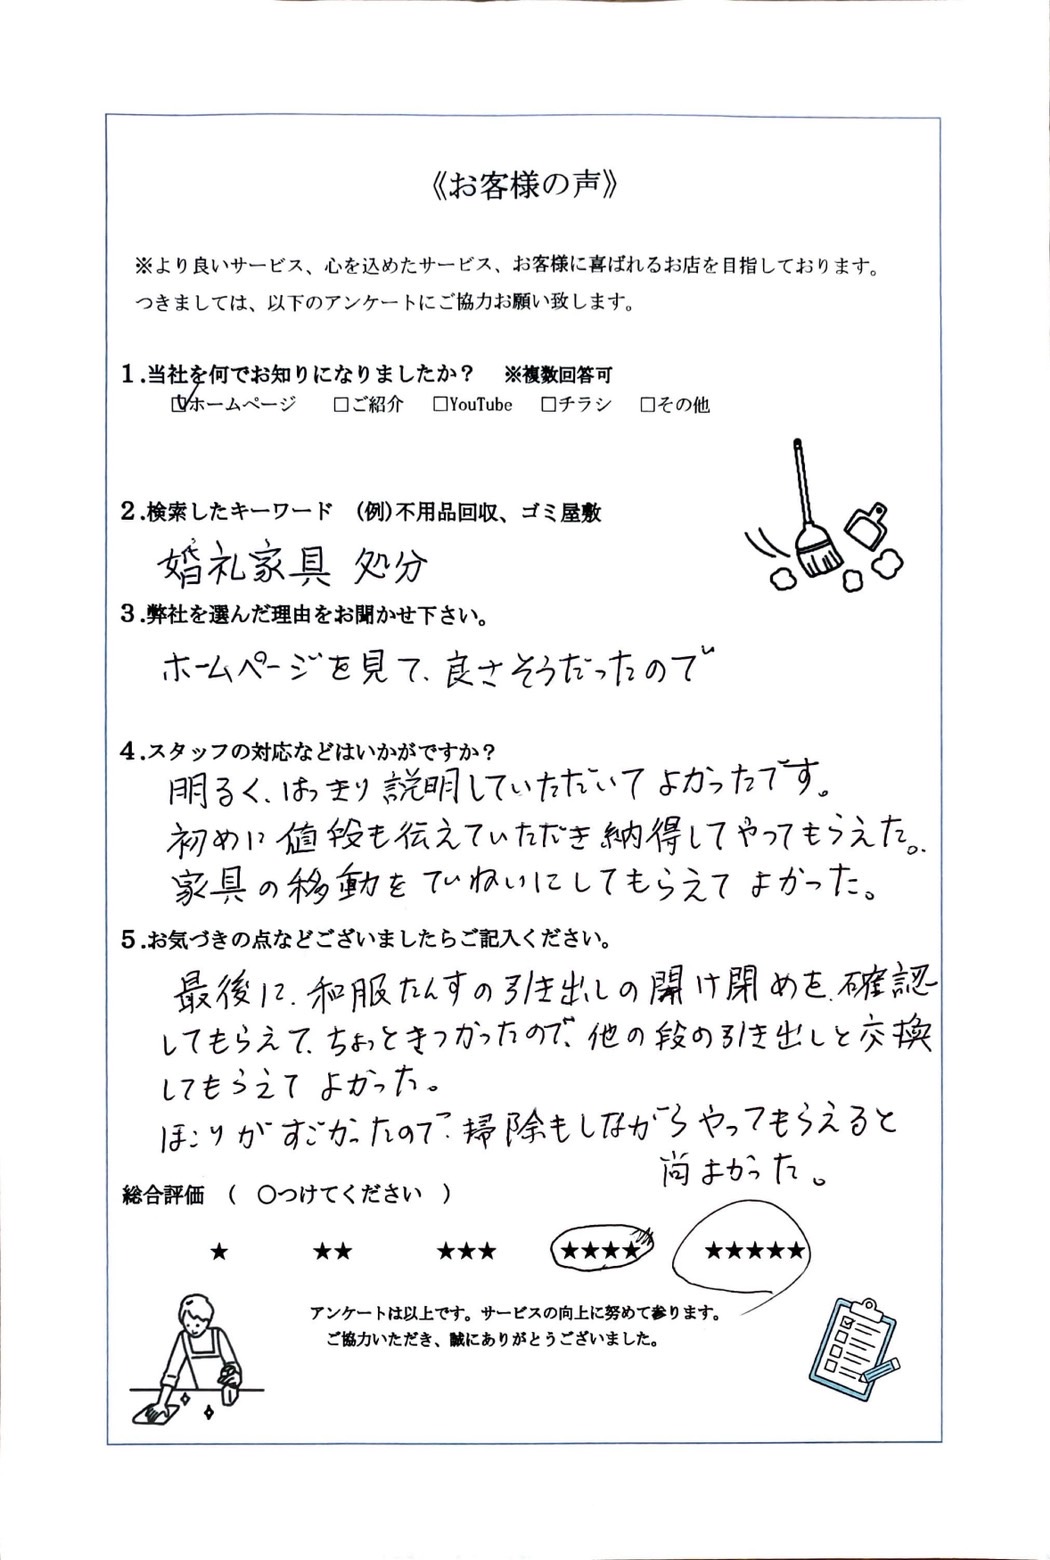 《お客様の声》
※より良いサービス、心を込めたサービス、お客様に喜ばれるお店を目指しております。
つきましては、以下のアンケートにご協力お願い致します。
1.当社を何でお知りになりましたか？ ※複数回答可
☑ホームページ □ご紹介 □YouTube □チラシ □その他
2.検索したキーワード (例)不用品回収、ゴミ屋敷
婚礼家具 処分
3.弊社を選んだ理由をお聞かせ下さい。
ホームページを見て、良さそうだったので
4.スタッフの対応などはいかがですか？
明るく、はっきり説明していただいてよかったです。
初めに値段も伝えていただき納得してやってもらえた。
家具の移動をていねいにしてもらえてよかった。
5.お気づきの点などございましたらご記入ください。
最後に、和服たんすの引き出しの開け閉めを、確認
してもらえて、ちょっときつかったので、他の段の引き出しと交換
してもらえてよかった。
ほこりがすごかったので、掃除もしながらやってもらえると
尚よかった。
総合評価 ( ○つけてください )
★ ★★ ★★★ ★★★★ ★★★★★
アンケートは以上です。サービスの向上に努めて参ります。
ご協力いただき、誠にありがとうございました。